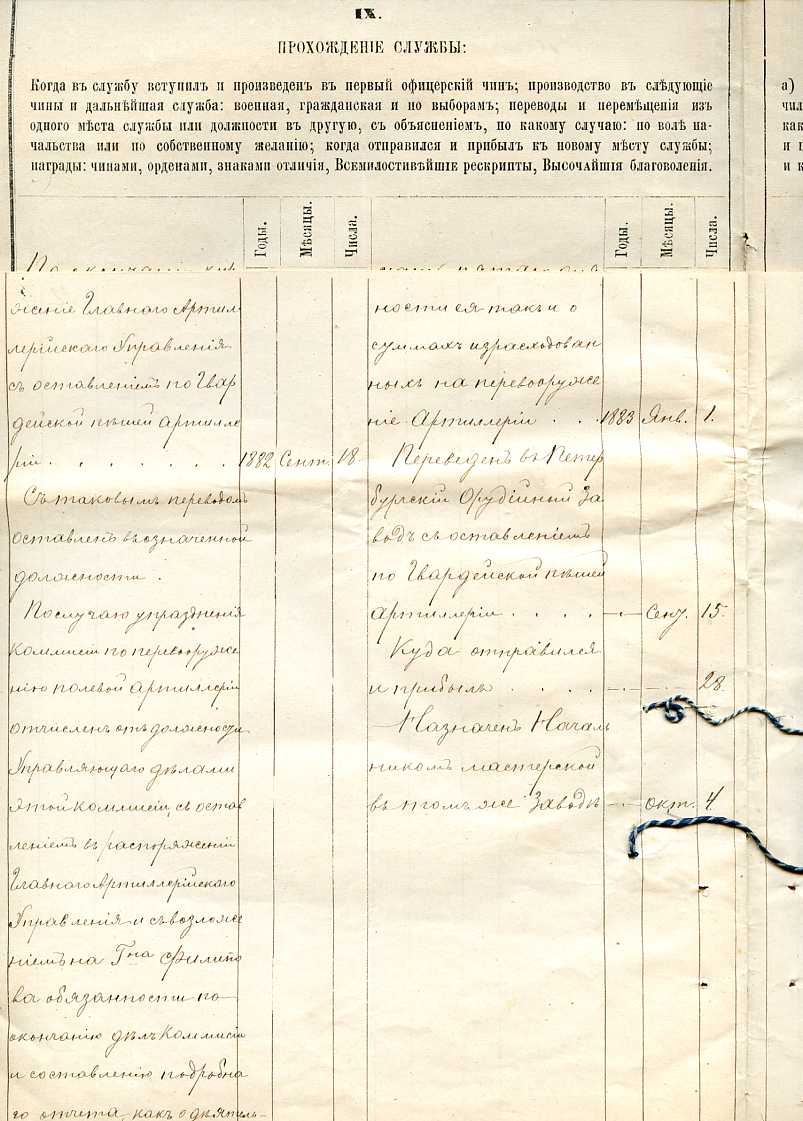 IX.
ПРОХОЖДЕНІЕ СЛУЖБЫ:
Когда въ службу вступилъ и произведенъ въ первый офицерскій чинъ; производство въ слѣдующіе
чины и дальнѣйшая служба: военная, гражданская и по выборамъ; переводы и перемѣщенія изъ
одного мѣста службы или должности въ другую, съ объясненіемъ, по какому случаю: по волѣ на-
чальства или по собственному желанію; когда отправился и прибылъ къ новому мѣсту службы;
награды: чинами, орденами, знаками отличія, Всемилостивѣйшіе рескрипты, Высочайшія благоволенія.
Годы. Мѣсяцы. Числа.
женіе Главнаго Артил
лерійскаго Управленія
съ оставленіемъ по Гвар
дейской пѣшей артилле
ріи . . . . . . 1882 Сент. 18.
Съ таковымъ переводомъ
оставленъ въ означенной
должности.
По случаю упраздненія
Коммисіи по перевооруже
нію полевой артиллеріи
отчисленъ отъ должности
Управляющаго дѣлами
этой Коммисіи, съ остав
леніемъ въ распоряженіи
Главнаго Артиллерійскаго
Управленія и съ возложе
ніемъ на Гна Филипо
ва обязанности по
окончанію дѣлъ Коммисіи
и составленію подробна
го отчета, какъ о дѣятель-
Годы. Мѣсяцы. Числа.
ности ея такъ и о
суммахъ израсходован
ныхъ на перевооруже
ніе Артиллеріи . . . 1883 Янв. 1.
Переведенъ въ Петер
бургскій Орудійный За
водъ съ оставленіемъ
по Гвардейской пѣшей
артиллеріи . . . . — Сент. 15.
Куда отправился
и прибылъ . . . . — — 28.
Назначенъ Началь
никомъ мастерской
въ томъ же Заводѣ — окт. 4.
а)
чил
как
и к